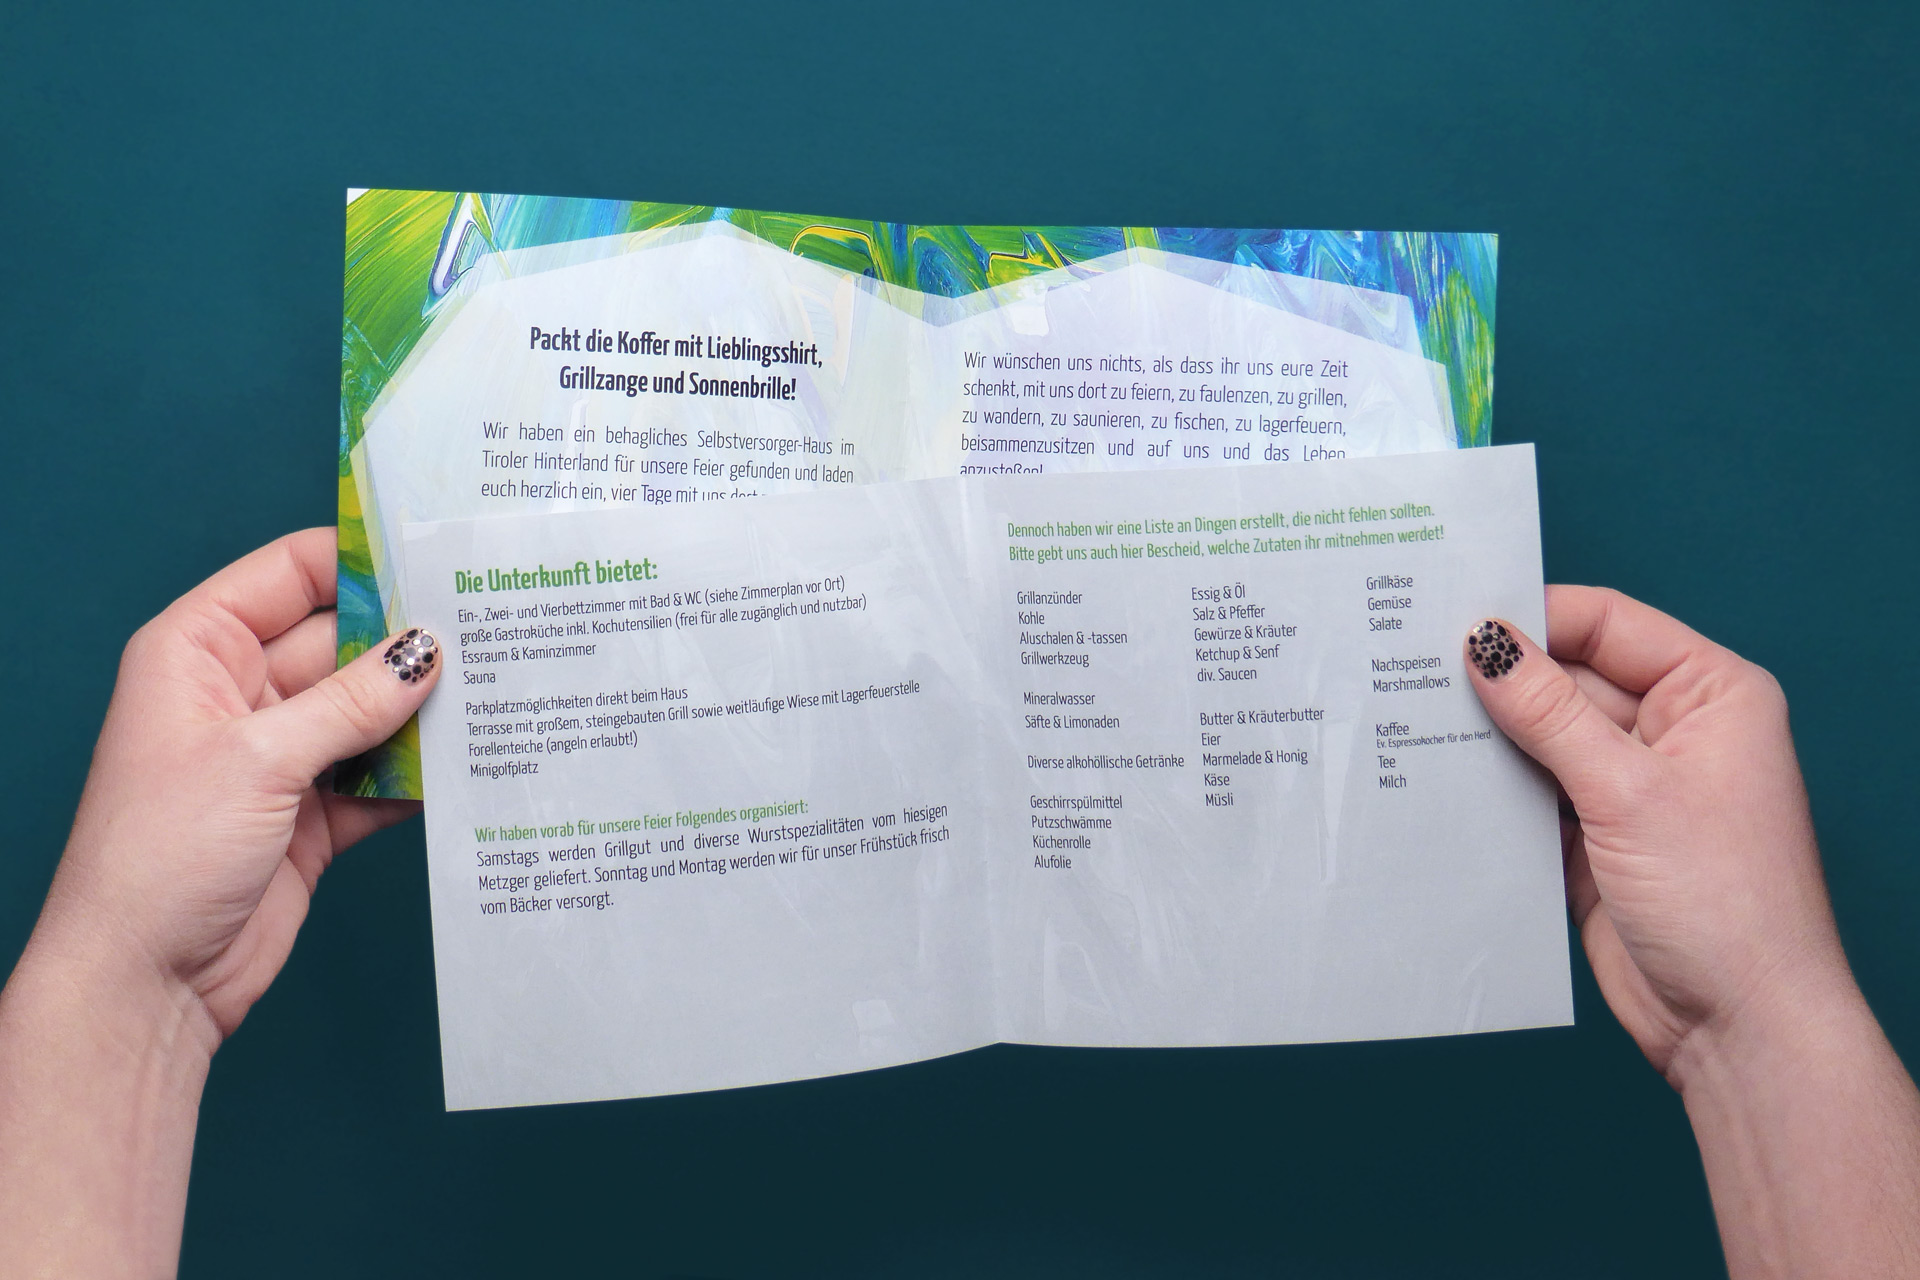 Packt die Koffer mit Lieblingsshirt,
Grillzange und Sonnenbrille!
Wir haben ein behagliches Selbstversorger-Haus im
Tiroler Hinterland für unsere Feier gefunden und laden
euch herzlich ein, vier Tage mit uns dort
Wir wünschen uns nichts, als dass ihr uns eure Zeit
schenkt, mit uns dort zu feiern, zu faulenzen, zu grillen,
zu wandern, zu saunieren, zu fischen, zu lagerfeuern,
beisammenzusitzen und auf uns und das Leben
anzustoßen!
Die Unterkunft bietet:
Ein-, Zwei- und Vierbettzimmer mit Bad & WC (siehe Zimmerplan vor Ort)
große Gastroküche inkl. Kochutensilien (frei für alle zugänglich und nutzbar)
Essraum & Kaminzimmer
Sauna
Parkplatzmöglichkeiten direkt beim Haus
Terrasse mit großem, steingebauten Grill sowie weitläufige Wiese mit Lagerfeuerstelle
Forellenteiche (angeln erlaubt!)
Minigolfplatz
Wir haben vorab für unsere Feier Folgendes organisiert:
Samstags werden Grillgut und diverse Wurstspezialitäten vom hiesigen
Metzger geliefert. Sonntag und Montag werden wir für unser Frühstück frisch
vom Bäcker versorgt.
Dennoch haben wir eine Liste an Dingen erstellt, die nicht fehlen sollten.
Bitte gebt uns auch hier Bescheid, welche Zutaten ihr mitnehmen werdet!
Grillanzünder
Kohle
Aluschalen & -tassen
Grillwerkzeug
Mineralwasser
Säfte & Limonaden
Diverse alkohöllische Getränke
Geschirrspülmittel
Putzschwämme
Küchenrolle
Alufolie
Essig & Öl
Salz & Pfeffer
Gewürze & Kräuter
Ketchup & Senf
div. Saucen
Butter & Kräuterbutter
Eier
Marmelade & Honig
Käse
Müsli
Grillkäse
Gemüse
Salate
Nachspeisen
Marshmallows
Kaffee
Ev. Espressokocher für den Herd
Tee
Milch